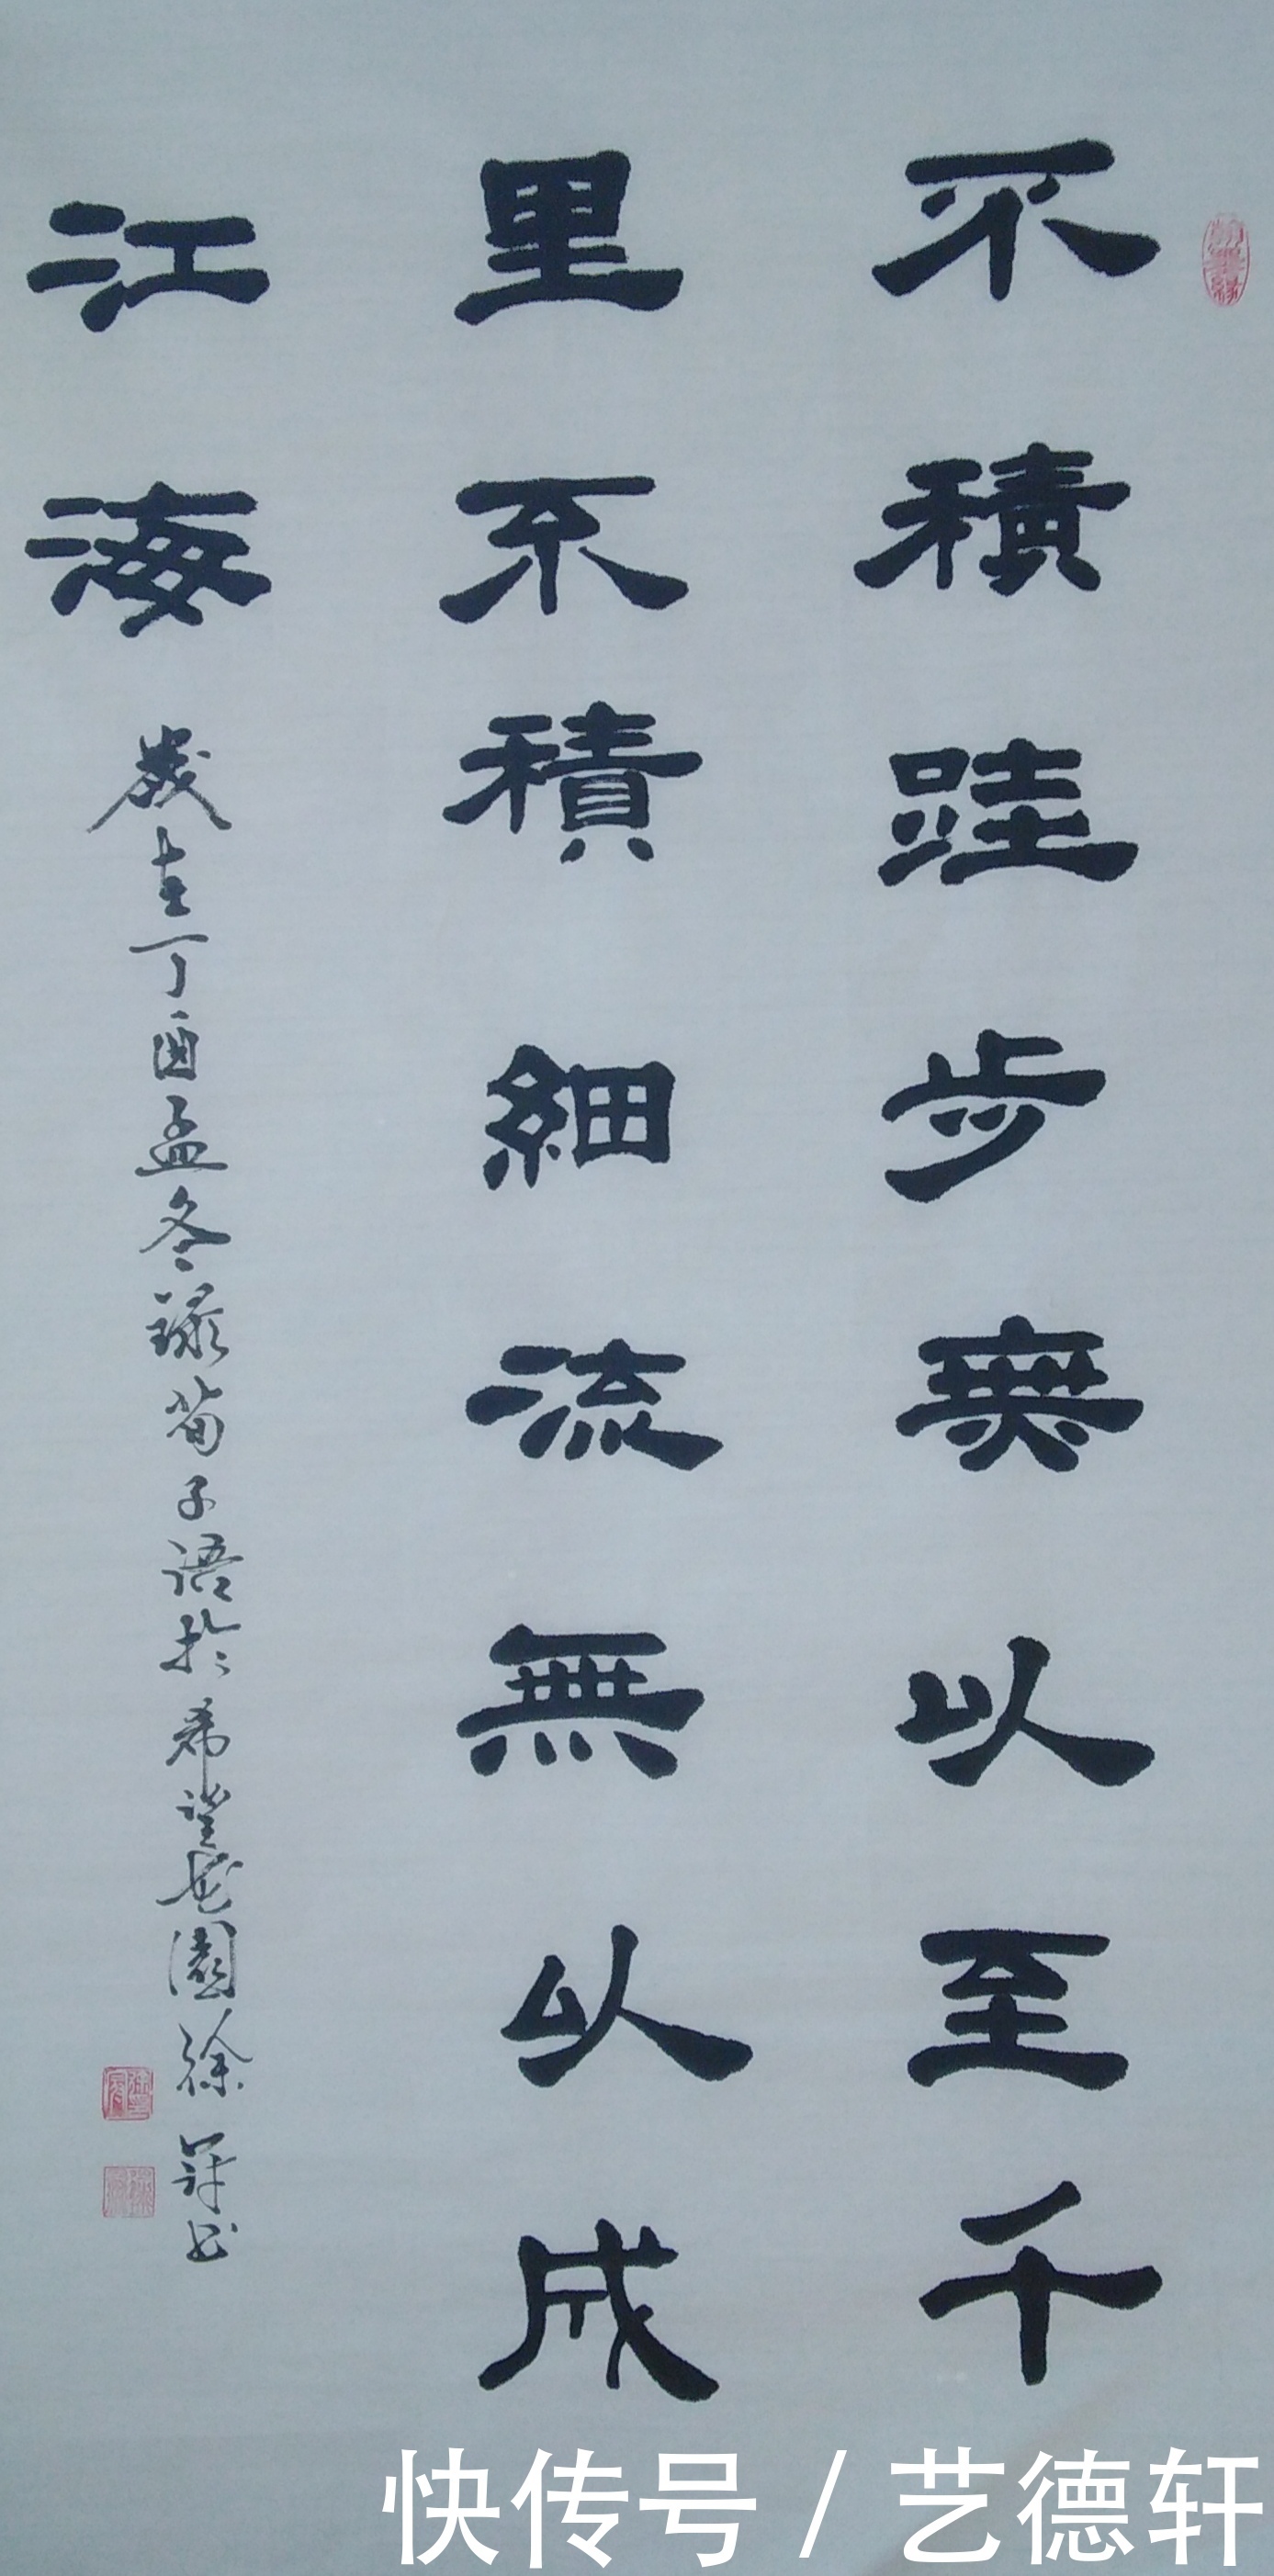 翰墨緣
不積跬步無以至千
里不積細流無以成
江海
歲在丁酉孟冬録荀子语於希望花園徐书
快传号 / 艺德轩